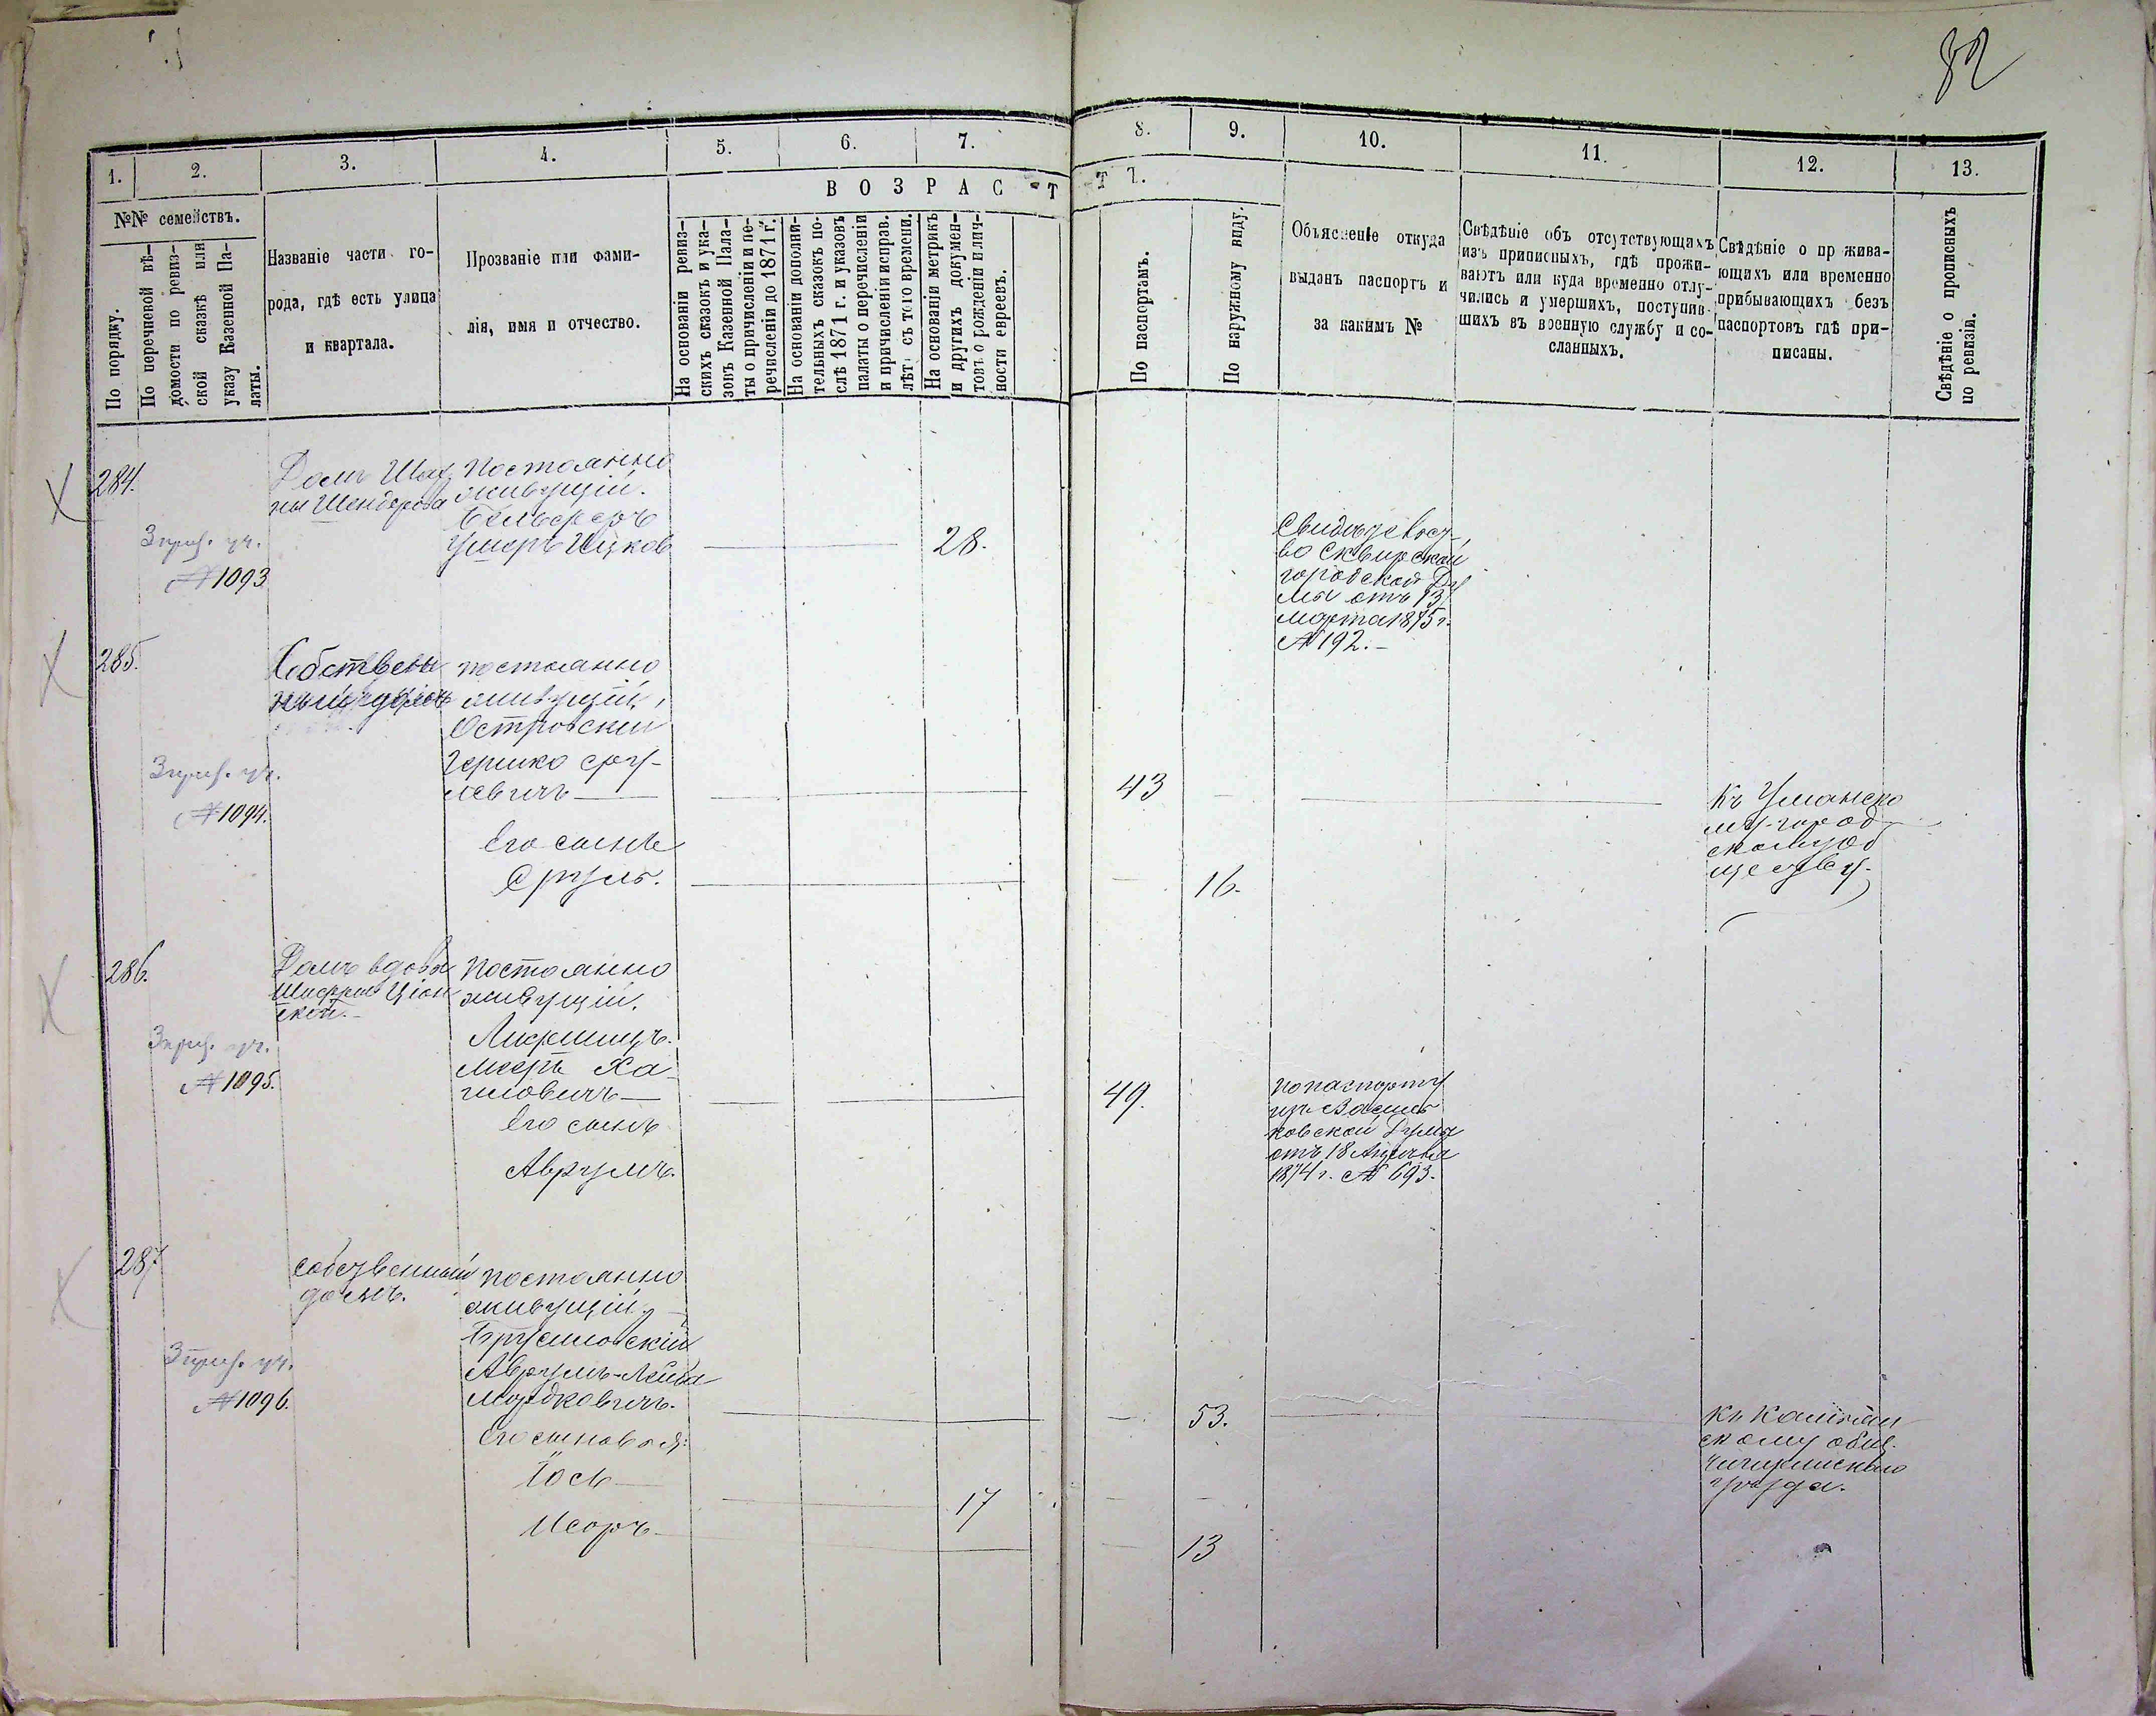 82
1.
2.
3.
4.
5.
6.
7.
8.
9.
10.
11.
12.
13.
ВОЗРАСТ
Т Ъ.
№№ семействъ.
По порядку.
По перечневой вѣ-
домости по ревиз-
ской сказкѣ или
указу Казенной Па-
латы.
Названіе части го-
рода, гдѣ есть улица
и квартала.
Прозваніе или фами-
лія, имя и отчество.
На основаніи ревиз-
скихъ сказокъ и ука-
зовъ Казенной Пала-
ты о причисленіи и пе-
речисленіи до 1871 г.
На основаніи дополни-
тельныхъ сказокъ по-
слѣ 1871 г. и указовъ
палаты о перечисленіи
и причисленіи исправ.
лѣтъ съ того времени.
На основаніи метрикъ
и другихъ докумен-
товъ о рожденіи и лич-
ности евреевъ.
По паспортамъ.
По наружному виду.
Объясненіе откуда
выданъ паспортъ и
за какимъ №
Свѣдѣніе объ отсутствующихъ
изъ приписныхъ, гдѣ прожи-
ваютъ или куда временно отлу-
чились и умершихъ, поступив-
шихъ въ военную службу и со-
сланныхъ.
Свѣдѣніе о прожива-
ющихъ или временно
прибывающихъ безъ
паспортовъ гдѣ при-
писаны.
Свѣдѣніе о прописныхъ
по ревизіи.
284.
3 приз. уч.
№ 1093
Домъ
Шендерова
Постоянно
живущій.
Умеръ Ицков
28.
Свидѣтельст-
во Сквирской
городской Ду
мы отъ 13
марта 1875 г.
№ 192.-
285.
3 приз. уч.
№ 1094.
Собствен
ный домъ
постоянно
живущій,
Островскій
Гершко Сру-
левичъ
43
Къ Уманско
му город
скому об
ществу.
Его сынъ
Сруль.
16.
286.
3 приз. уч.
№ 1095.
Домъ вдовы
Шифры Ціон
ской.-
Постоянно
живущій.
Лифшицъ.
Мееръ Ха-
имовичъ
49.
по паспорту
изъ Василь
ковской Думы
отъ 18
1874 г. № 693.
Его сынъ
Аврумъ.
287.
3 приз. уч.
№ 1096.
Собственный
домъ.
постоянно
живущій
Брусиловскій
Аврумъ-Лейба
Мордковичъ.
53.
скому общ.
Чигиринскаго
уѣзда.
Его сыновья:
Іось
17
13